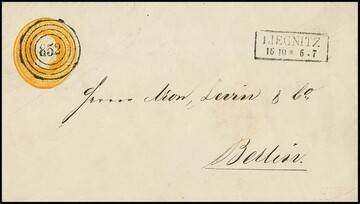 852
LIEGNITZ
16 10 * 6-7
Herrn Aron, Levin & Co
Berlin.